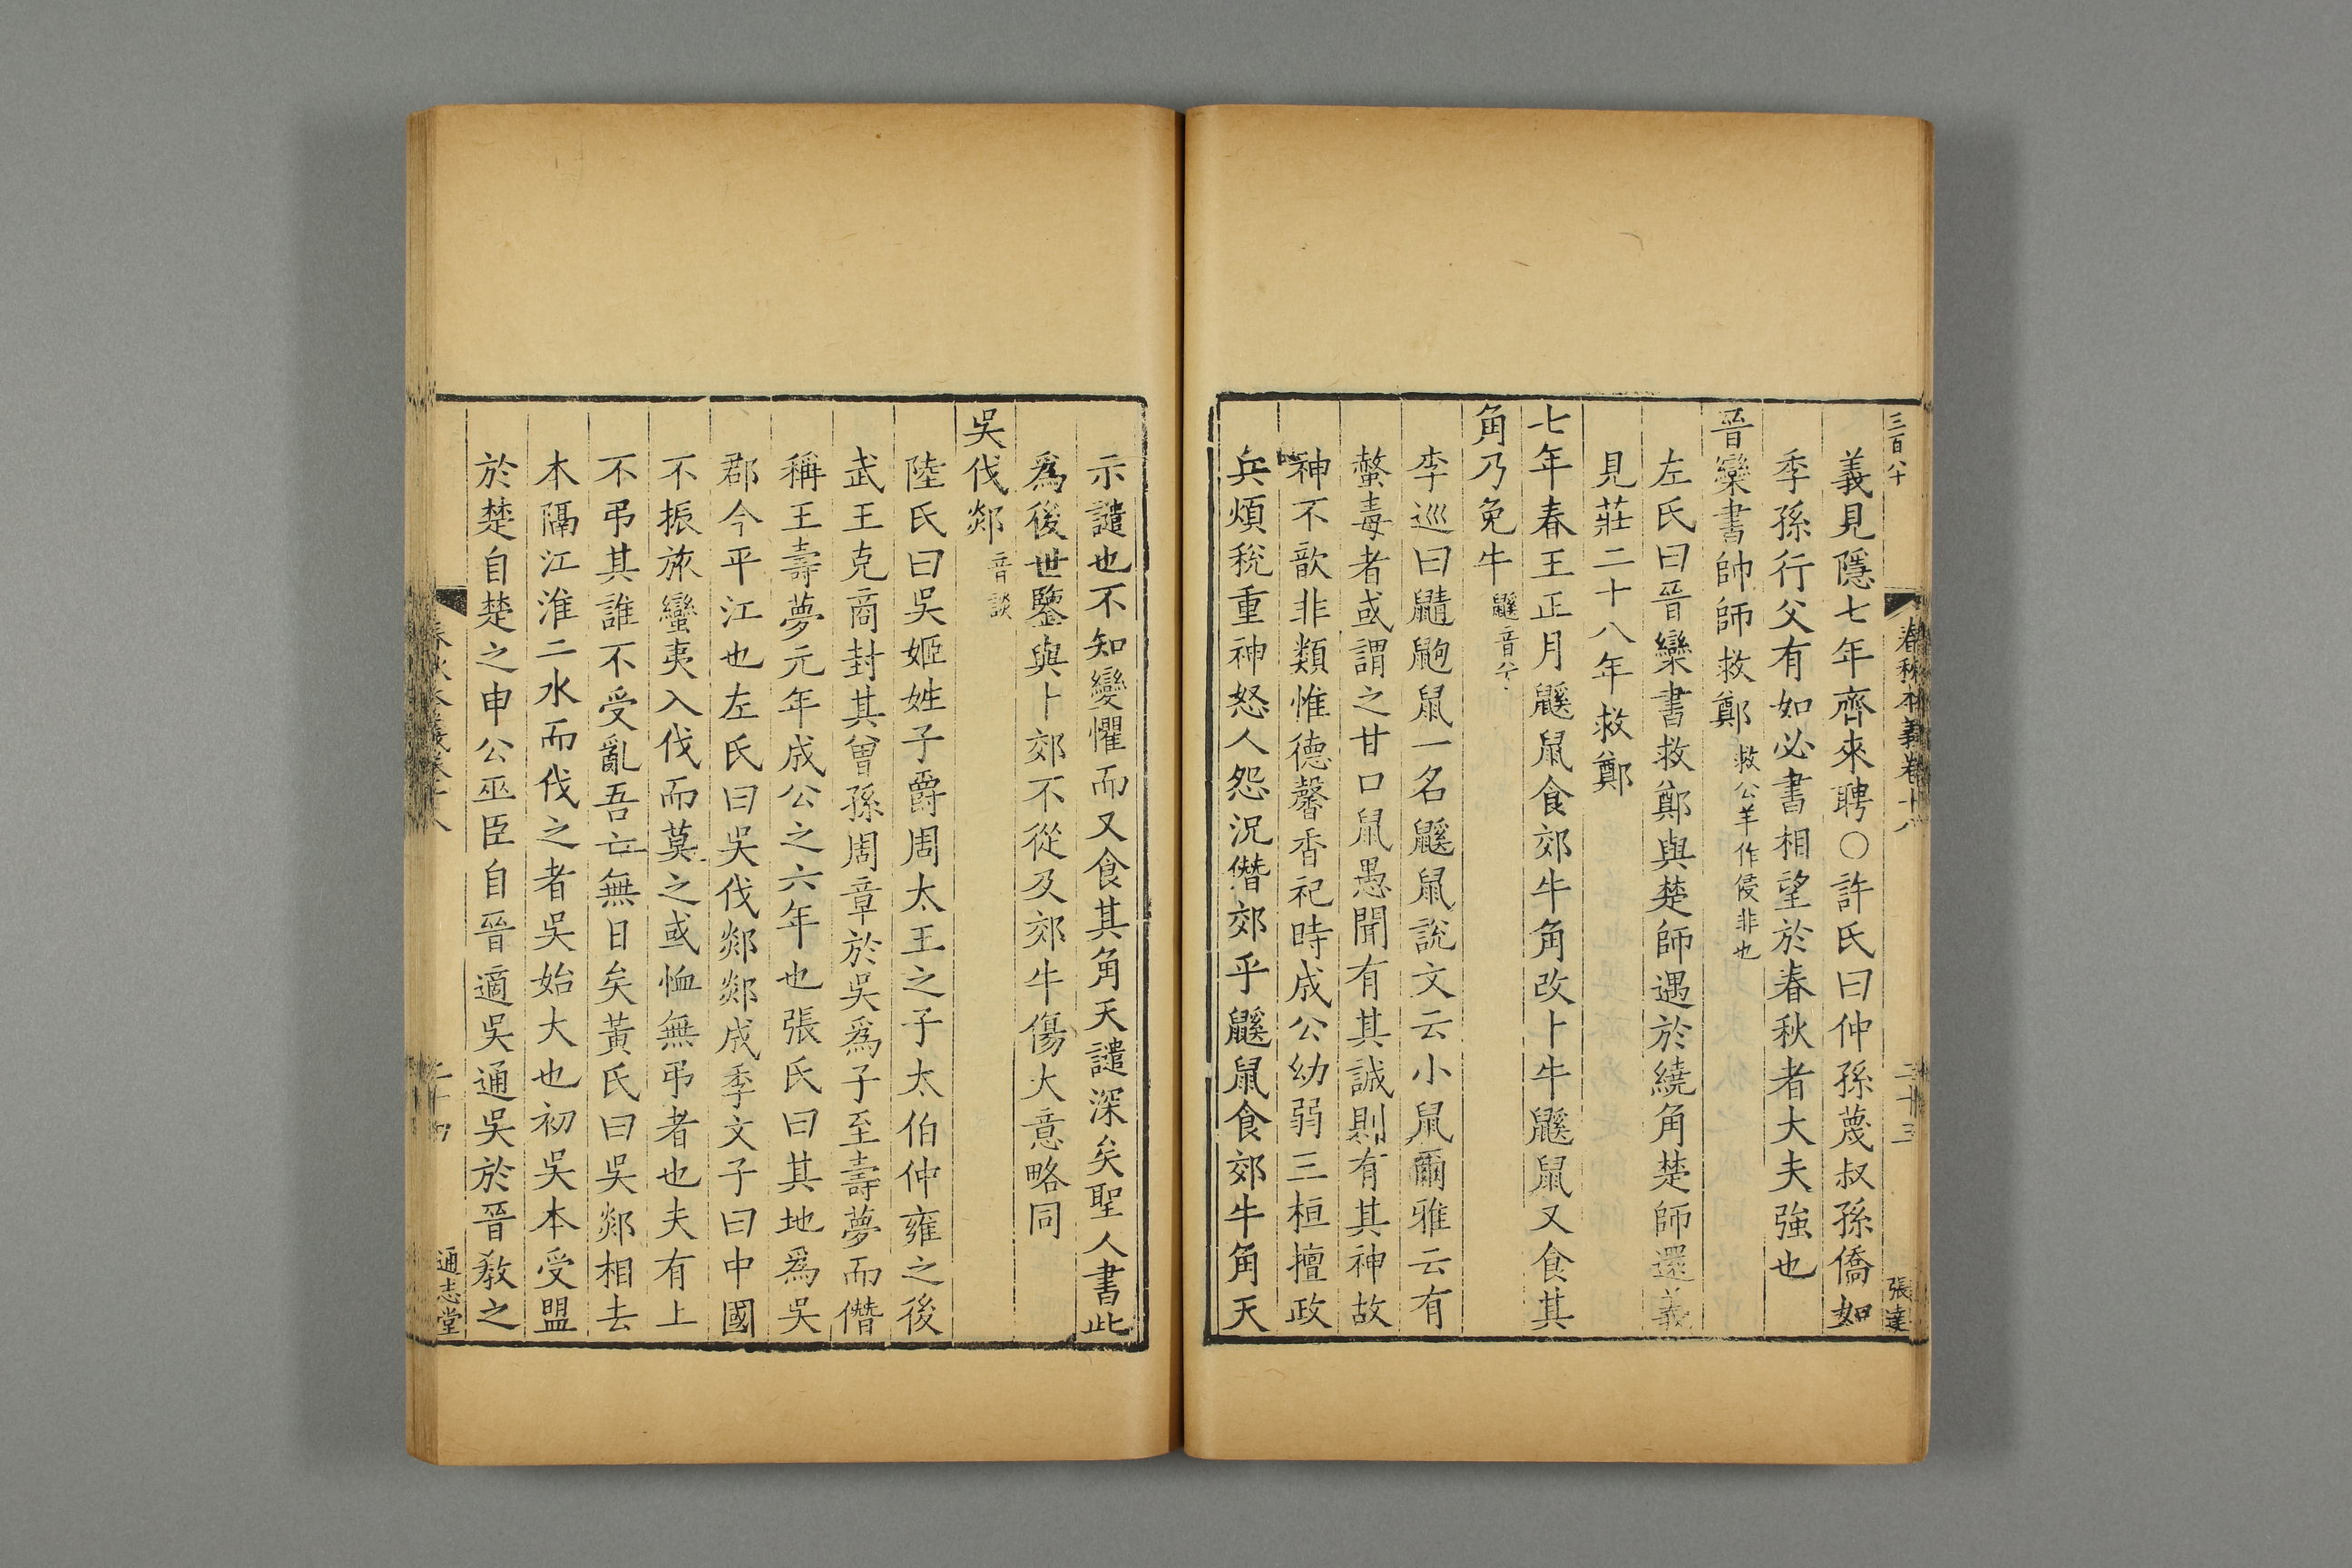 三百八十
春秋本義卷十八
二十三
張達
義見隱七年齊來聘○許氏曰仲孫蔑叔孫僑如
季孫行父有如必書相望於春秋者大夫強也
晉欒書帥師救鄭 救公羊作侵非也
左氏曰晉欒書救鄭與楚師遇於繞角楚師還義
見莊二十八年救鄭
七年春王正月鼷鼠食郊牛角改卜牛鼷鼠又食其
角乃免牛 鼷音兮
李巡曰鼱鼩鼠一名鼷鼠說文云小鼠爾雅云有
螫毒者或謂之甘口鼠愚聞有其誠則有其神故
神不歆非類惟德馨香祀時成公幼弱三桓擅政
兵煩稅重神怒人怨況僭郊乎鼷鼠食郊牛角天
示譴也不知變懼而又食其角天譴深矣聖人書此
爲後世鑒與卜郊不從及郊牛傷大意略同
吳伐郯 音談
陸氏曰吳姬姓子爵周太王之子太伯仲雍之後
武王克商封其曾孫周章於吳爲子至壽夢而僭
稱王壽夢元年成公之六年也張氏曰其地爲吳
郡今平江也左氏曰吳伐郯郯成季文子曰中國
不振旅蠻夷入伐而莫之或恤無弔者也夫有上
不弔其誰不受亂吾亡無日矣黃氏曰吳郯相去
本隔江淮二水而伐之者吳始大也初吳本受盟
於楚自楚之申公巫臣自晉適吳通吳於晉教之
春秋本義卷十八
二十四
通志堂